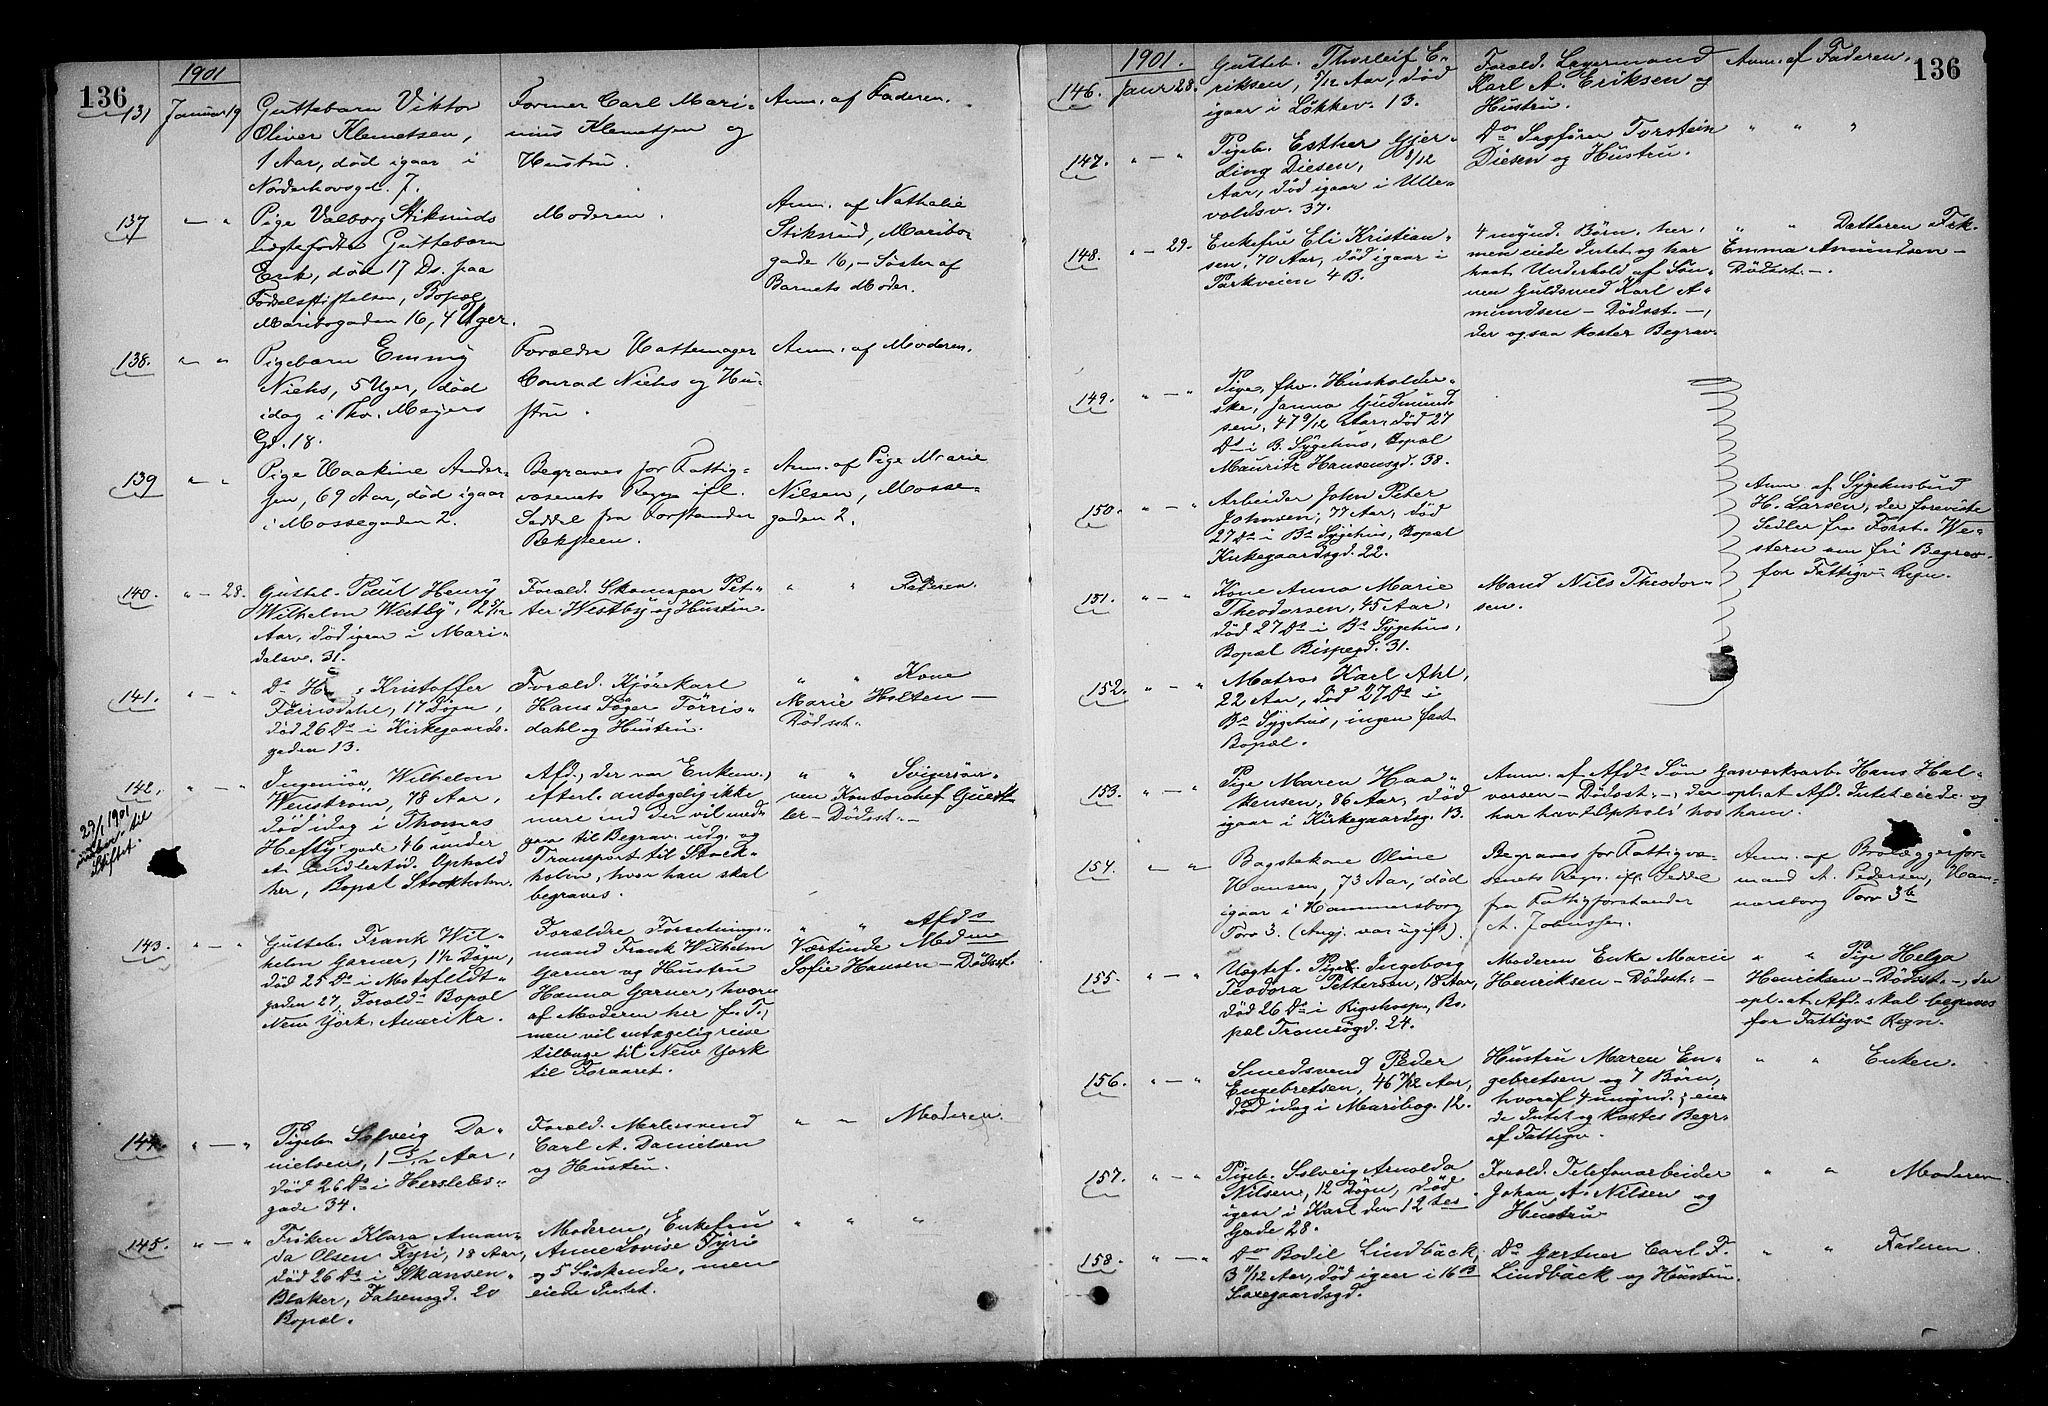 136
1901
131 Januar 19
Guttebarn Viktor
Oliver Klemetsen,
1 Aar, død igaar i
Norderhovsgd. 7.
Former Carl Mari-
nius Klemetsen og
Hustru.
Anm. af Faderen.
137 " — "
Pige Valborg Stiksruds
uægtefødte Guttebarn
Erik, død 17 Ds. paa
Fødselsstiftelsen, Bopæl
Maribogaden 16, 4 Uger.
Moderen.
Anm. af Nathalie
Stiksrud, Maribo-
gade 16, - Søster af
Barnets Moder.
138. " "
Pigebarn Emmy
Niehs, 5 Uger, død
idag i Thv. Meyers
Gd. 18.
Forældre Hattemager
Conrad Niehs og Hu-
stru.
Anm. af Moderen.
139 " "
Pige Haakine Ander-
sen, 69 Aar, død igaar
i Mossegaden 2.
Begraves for Fattig-
væsenets Regn ifl.
Seddel fra Forstander
Beksteen.
Anm. af Pige Marie
Nilsen, Mosse-
gaden 2.
140. " — 28.
Gutteb. Paul Henry
Wilhelm Westby, 2
Aar, død igaar i Mari-
dalsv. 31.
Foræld. Skomager Pet-
ter Westby og Hustru.
" " Faderen.
141. " — "
Do Kristoffer
Førrisdahl, 17 Døgn,
død 26 Ds i Kirkegaards-
gaden 13.
Foræld. Kjørekarl
Hans Tøger Førris-
dahl og Hustru.
" " Kone
Marie Holten —
Dødsst.
142. " — "
29/1 1901
til
Stiftet.
Ingeniør Wilhelm
Wenstrøm, 78 Aar,
død idag i Thomas
Heftys gade 46 under
et midlertid. Ophold
her, Bopæl Stockholm.
Afd., der var Enkem.,
efterl. antagelig ikke
mere ind der vil med-
gaa til Begrav. udg. og
Transport til Stock-
holm, hvor han skal
begraves.
" " Svigersøn-
nen Kontorchef
- Dødsst. -
143. " — "
Gutteb. Frank Wil-
helm Garner, 1½ Døgn,
død 25 Ds i Motzfeldt-
gaden 27, Foræld. Bopæl
New York, Amerika.
Forældre Forretnings-
mand Frank Wilhelm
Garner og Hustru
Hanna Garner, hvoraf
af Moderen her f. T.,
men vil antagelig reise
tilbage til New York
til Foraaret.
" " Afds
Værtinde Madme
Sofie Hansen - Dødsst.
144. " — "
Pigeb. Solveig Da-
nielsen, 1 Aar,
død 26 Ds i Herslebs-
gade 34.
Foræld. Malersvend
Carl A. Danielsen
og Hustru.
" " Moderen.
145. " — "
Frøken Klara Aman-
da Olsen Fyri, 18 Aar,
død 26 Ds i Skansen,
Blaker, Falsensgd. 20
Bopæl.
Moderen, Enkefru
Anne Lovise Fyrie
og 5 Søskende, men
eiede Intet.
" " "
136
1901.
146. Janr 28.
Gutteb. Thorleif E-
riksen, 5/12 Aar, død
igaar i Løkkev. 13.
Foræld. Lagermand
Karl A. Eriksen og
Hustru.
Anm. af Faderen.
147. " — "
Pigeb. Esther Gjer-
ding Diesen, 8/12
Aar, død igaar i Ulle-
voldsv. 37.
Do Sagfører Torstein
Diesen og Hustru.
" " "
148. " — 29.
Enkefru Eli Kristian-
sen, 70 Aar, død igaar i
Parkveien 4 B.
4 mynd. Børn, her,
men eiede Intet og har
havt Underhold af Søn-
nen Guldsmed Karl A-
mundsen - Dødsst. -,
der ogsaa koster Begrav.
" " Datteren Frk.
Emma Amundsen -
Dødsst. -.
149. " — "
Pige, fhv. Husholder-
ske, Janna Gudmund-
sen, 47 9/12 Aar, død 27
Ds i B. Sygehus, Bopæl
Mauritz Hansensgd. 38.
150. " — "
Arbeider John Peter
Johnsen, 77 Aar, død
27 Ds i Bs Sygehus, Bopæl
Kirkegaardsgd. 22.
Anm. af Sygehusbud
H. Larsen, der foreviste
Sedler fra Forst. We-
stern om fri Begrav.
for Fattigv. Regn.
151. " — "
Kone Anna Marie
Theodorsen, 45 Aar,
død 27 Ds i Bs Sygehus,
Bopæl Bispegd. 31.
Mand Nils Theodor-
sen.
152. " — "
Matros Karl Ahl,
22 Aar, død 27 Ds i
Bs Sygehus, ingen fast
Bopæl.
153. " — "
Pige Maren Haa-
kensen, 86 Aar, død
igaar i Kirkegaardsg. 13.
Anm. af Afds Søn Gasværksarb. Hans Hal-
vorsen - Dødsst. -, der opl. at Afd. Intet eiede og
har havt Ophold hos ham.
154. " — "
Bagstekone Oline
Hansen, 73 Aar, død
igaar i Hammersborg
Torv 3. (Angj. var ugift).
Begraves for Fattigvæ-
senets Regn. ifl. Seddel
fra Fattigforstander
A. Johnssen.
Anm. af Brolæggerfor-
mand A. Pedersen, Ham-
mersborg Torv 3b
155. " — "
Uægtef. Pigeb. Ingeborg
Teodora Pettersen, 18 Aar,
død 26 Ds i Rigshosp., Bo-
pæl Tromsøgd. 24.
Moderen Enke Marie
Henriksen - Dødsst. -
" " Pige Helga
Henriksen - Dødsst. -, der
opl. at Afd. skal begraves
for Fattigvs Regn.
156. " — "
Smedsvend Peder
Engebretsen, 46 Aar,
død idag i Maribog. 12.
Hustru Maren En-
gebretsen og 7 Børn,
hvoraf 4 umynd.; eie-
de Intet og kostes Begr.
af Fattigv.
" " Enken.
157. " — "
Pigeb. Solveig Arnolda
Nilsen, 12 Døgn, død
igaar i Karl den 12tes
Gade 28.
Foræld. Telefonarbeider
Johan A. Nilsen og
Hustru
" " Moderen
158. " — "
Do Bodil Lindbäck,
3 11/12 Aar, død igaar i 16 B
Saxegaardsgd.
Do Gartner Carl F.
Lindbäck og Hustru.
" " Faderen